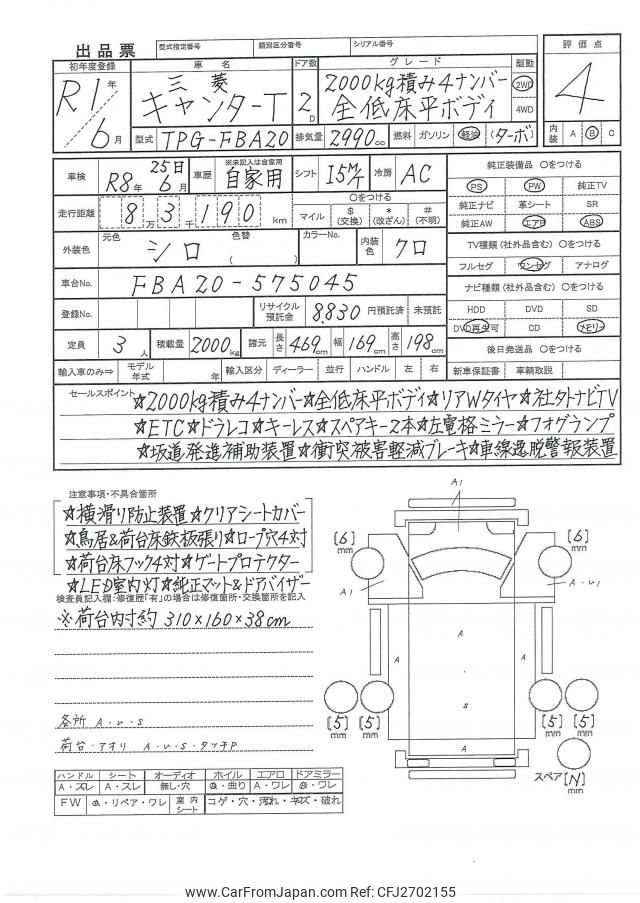 出品票 型式指定番号 類別区分番号 シリアル番号
初年度登録 車名 ドア数 グレード 駆動 評価点
R1年 6月
三菱 キャンターT
2D
2000kg積み4ナンバー
全低床平ボディ
2WD 4WD
4
型式 TPG-FBA20 排気量 2990cc 燃料 ガソリン 軽油 (ターボ) 内装 A B C
車検 R8年 6月 25日 車歴 ※未記入は自家用 自家用 シフト I5M/T 冷房 AC
走行距離 8万3千190km マイル ○をつける $(交換) *(改ざん) #(不明)
外装色 元色 シロ 色替 ( ) カラーNo. 内装色 クロ
車台No. FBA20-575045
登録No. リサイクル預託金 8,830 円預託済 未預託
定員 3人 積載量 2000kg 諸元 長さ 469cm 幅 169cm 高さ 198cm
輸入車のみ⇒ モデル年式 年 輸入区分 ディーラー 並行 ハンドル 左 右
純正装備品 ○をつける
PS PW 純正TV
純正ナビ 革シート SR
純正AW エアB ABS
TV種類(社外品含む) ○をつける
フルセグ ワンセグ アナログ
ナビ種類(社外品含む) ○をつける
HDD DVD SD
DVD再生可 CD メモリー
後日発送品 ○をつける
新車保証書 車輌取説
セールスポイント
☆2000kg積み4ナンバー☆全低床平ボディ☆リアWタイヤ☆社外ナビTV
☆ETC☆ドラレコ☆キーレス☆スペアキー2本☆左電格ミラー☆フォグランプ
☆坂道発進補助装置☆衝突被害軽減ブレーキ☆車線逸脱警報装置
注意事項・不具合箇所
☆横滑り防止装置☆クリアシートカバー
☆鳥居&荷台床鉄板張り☆ロープ穴4対
☆荷台床フック4対☆ゲートプロテクター
☆LED室内灯☆純正マット&ドアバイザー
検査員記入欄:修復歴「有」の場合は修復箇所・交換箇所を記入
※荷台内寸約 310×160×38cm
各所 A・U・S
荷台・アオリ A・U・S・タッチP
A1
[6]mm [6]mm
A1 A・U1
A A A
S
[5]mm [5]mm [5]mm [5]mm
A
スペア [N]mm
ハンドル シート オーディオ ホイル エアロ ドアミラー
A・スレ A・スレ 無し・穴 A・曲り A・ワレ A・ワレ
FW A・リペア・ワレ 室内シート コゲ・穴・汚れ・キズ・破れ
www.CarFromJapan.com Ref: CFJ2702155